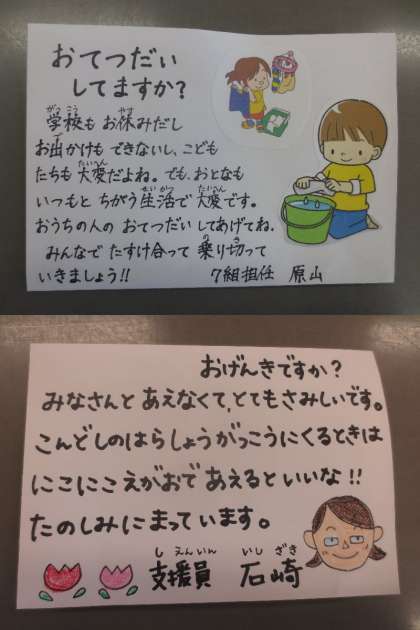 おてつだい
してますか?
学校も お休みだし
お出かけも できないし、こども
たちも 大変だよね。でも、おとなも
いつもと ちがう生活で 大変です。
おうちの人の おてつだい してあげてね。
みんなで たすけ合って 乗り切って
いきましょう!!
7組担任 原山
おげんきですか?
みなさんと あえなくて、とてもさみしいです。
こんどしのはらしょうがっこうにくるときは
にこにこ えがおで あえると いいな!!
たのしみに まって います。
しえんいん いしざき
支援員 石崎